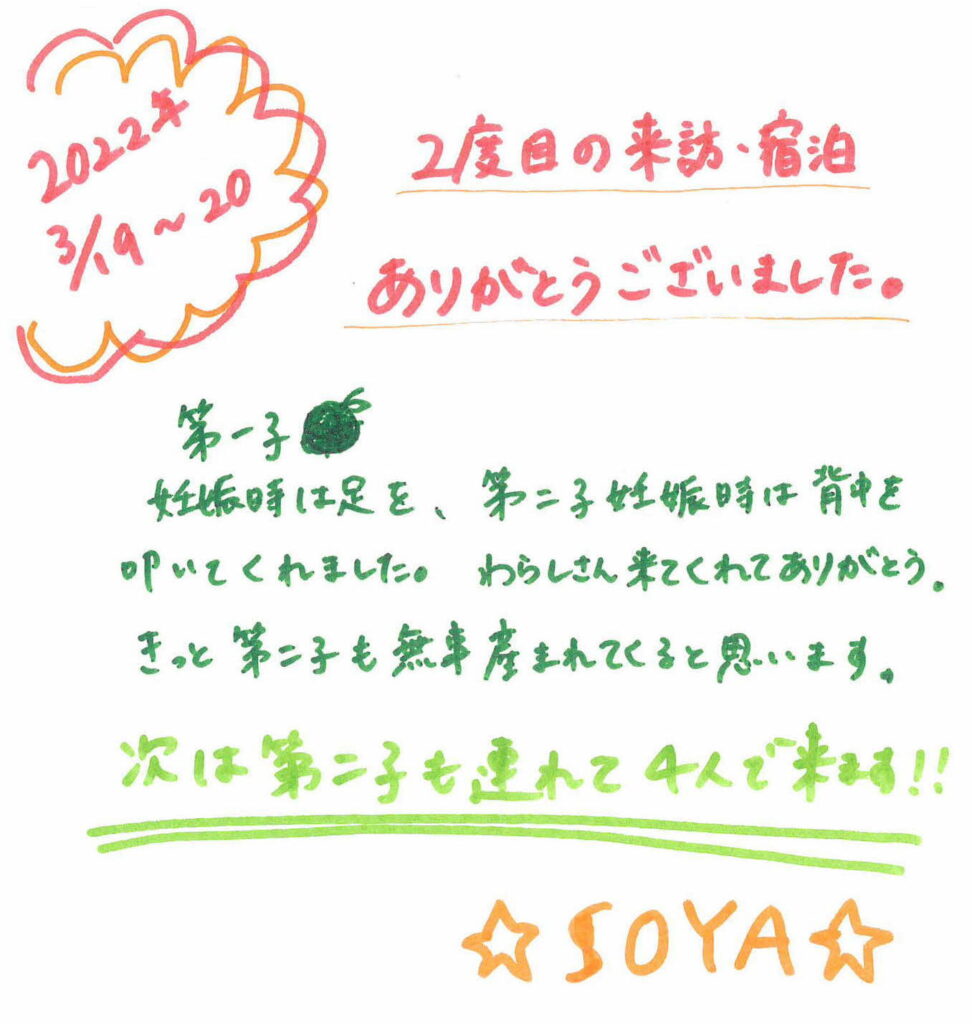 2022年
3/19~20
2度目の来訪・宿泊
ありがとうございました。
第一子
妊娠時は足を、第二子妊娠時は背中を
叩いてくれました。 わらしさん来てくれてありがとう。
きっと第二子も無事産まれてくると思います。
次は第二子も連れて4人で来ます!!
☆SOYA☆